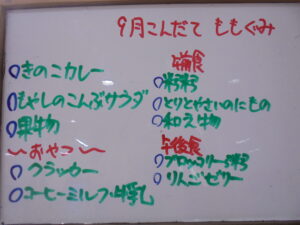 9月こんだて ももぐみ
きのこカレー
もやしのこんぶサラダ
果物
〜おやつ〜
クラッカー
コーヒーミルク・牛乳
午前食
粥
とりとやさいのにもの
和え物
午後食
ブロッコリー粥
りんごゼリー